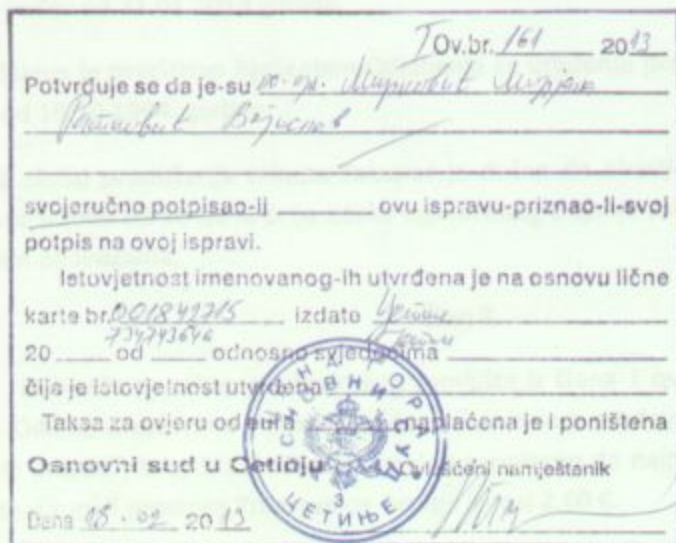 I Ov.br. 161 2013
Potvrđuje se da je-su
Војислав
svojeručno potpisao-li ovu ispravu-priznao-li-svoj
potpis na ovoj ispravi.
Istovjetnost imenovanog-ih utvrđena je na osnovu lične
karte br. 001842715 izdato Цетиње
734743646 Цетиње
20 od odnosno svjedocima
čija je istovjetnost utvrđena
Taksa za ovjeru od eura naplaćena je i poništena
Osnovni sud u Cetinju Ovlašćeni namještanik
Dana 18.02 2013
ЦРНА ГОРА
ОСНОВНИ СУД
3
ЦЕТИЊЕ